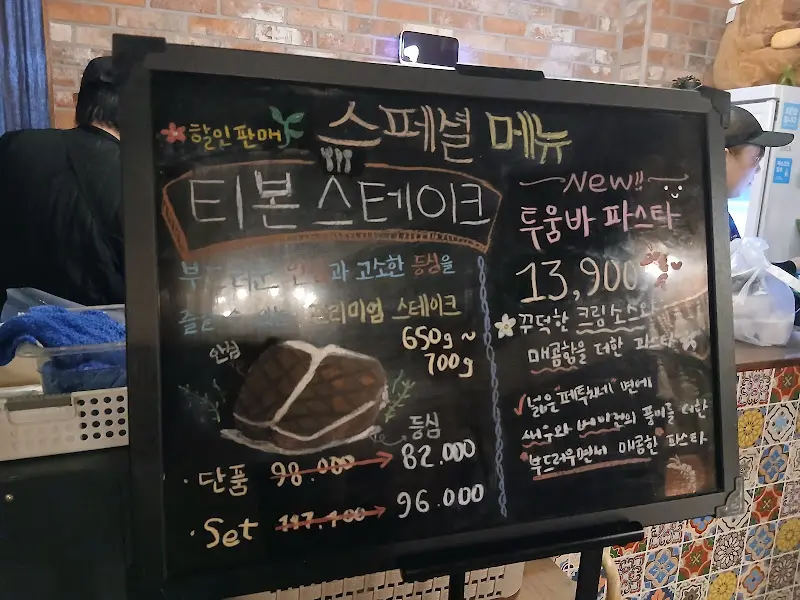 할인판매
스페셜 메뉴
티본 스테이크
고소한 등심을
스테이크
650g ~
700g
안심
등심
· 단품 98.000 → 82.000
· Set → 96.000
New!!
투움바 파스타
13,900
꾸덕한 크림소스와
매콤함을 더한 파스타
넓은 "페투치네" 면에
새우와 베이컨의 풍미를 더한
"부드러우면서 매콤한" 파스타